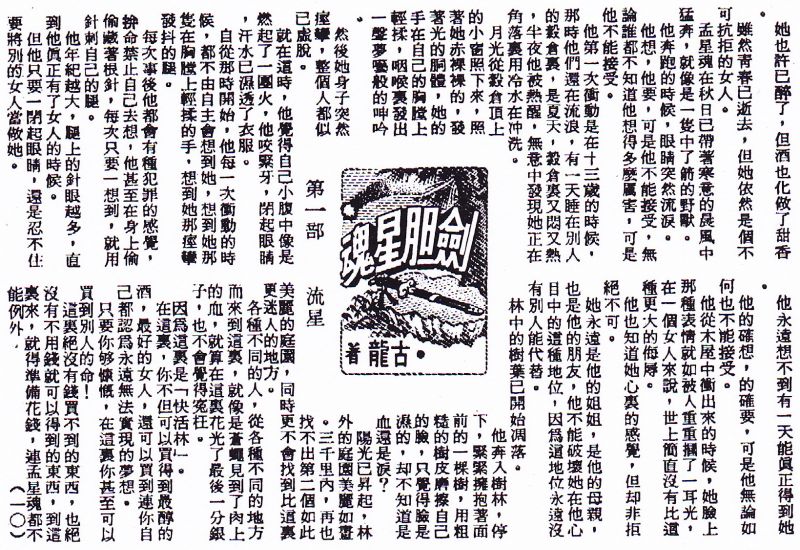 她也許已醉了，但酒也化做了甜香
。
雖然青春已逝去，但她依然是個不
可抗拒的女人。
孟星魂在秋日已帶著寒意的晨風中
猛奔，就像是一隻中了箭的野獸。
他奔跑的時候，眼睛突然流淚。
他想，他要，可是他不能接受，無
論誰都不知道他想得多麼厲害，可是
他不能接受。
他第一次衝動是在十三歲的時候，
那時他們還在流浪，有一天睡在別人
的穀倉裏，是夏天，穀倉裏又悶又熱
，半夜他被熱醒，無意中發現她正在
角落裏用冷水在冲洗。
月光從穀倉頂上
的小窗照下來，照
著她赤裸裸的，發
著光的胴體，她的
手在自己的胸膛上
輕揉，咽喉裏發出
一聲夢囈般的呻吟
。
然後她身子突然
痙攣，整個人都似
已虛脫。
就在這時，他覺得自己小腹中像是
燃起了一團火，他咬緊牙，閉起眼睛
，汗水已濕透了衣服。
自從那時開始，他每一次衝動的時
候，都不由自主會想到她，想到她那
隻在胸膛上輕揉的手，想到她那痙攣
發抖的腿。
每次事後他都會有種犯罪的感覺，
拚命禁止自己去想，他甚至在身上偷
偷藏著根針，每次只要一想到，就用
針刺自己的腿。
他年紀越大，腿上的針眼越多，直
到他眞正有了女人的時候。
但他只要一閉起眼睛，還是忍不住
要將別的女人當做她。
劍胆星魂
古龍
著
第一部　流星
他永遠想不到有一天能眞正得到她
。
他的確想，的確要，可是他無論如
何也不能接受。
他從木屋中衝出來的時候，她臉上
那種表情就如被人重重摑了一耳光，
在一個女人來說，世上簡直沒有比這
種更大的侮辱。
他也知道她心裏的感覺，但却非拒
絕不可。
她永遠是他的姐姐，是他的母親，
也是他的朋友，他不能破壞她在他心
目中的這種地位，因爲這地位永遠沒
有別人能代替。
林中的樹葉已開始凋落。
他奔入樹林，停
下，緊緊擁抱著面
前的一棵樹，用粗
糙的樹皮磨擦自己
的臉，只覺得臉是
濕的，却不知道是
血還是淚？
陽光已昇起，林
外的庭園美麗如畫
。三千里內，再也
找不出第二個如此
美麗的庭園，同時更不會找到比這裏
更迷人的地方。
各種不同的人，從各種不同的地方
而來到這裏，就像是蒼蠅見到了肉上
的血，就算在這裏花光了最後一分銀
子，也不會覺得寃枉。
因爲這裏是「快活林」。
在這裏，你不但可以買得到最醇的
酒，最好的女人，還可以買到連你自
己都認爲永遠無法實現的夢想。
只要你够慷慨，在這裏你甚至可以
買到別人的命！
這裏絕沒有錢買不到的東西，也絕
沒有不用錢就可以得到的東西，到這
裏來，就得準備花錢，連孟星魂都不
能例外。
（一〇）